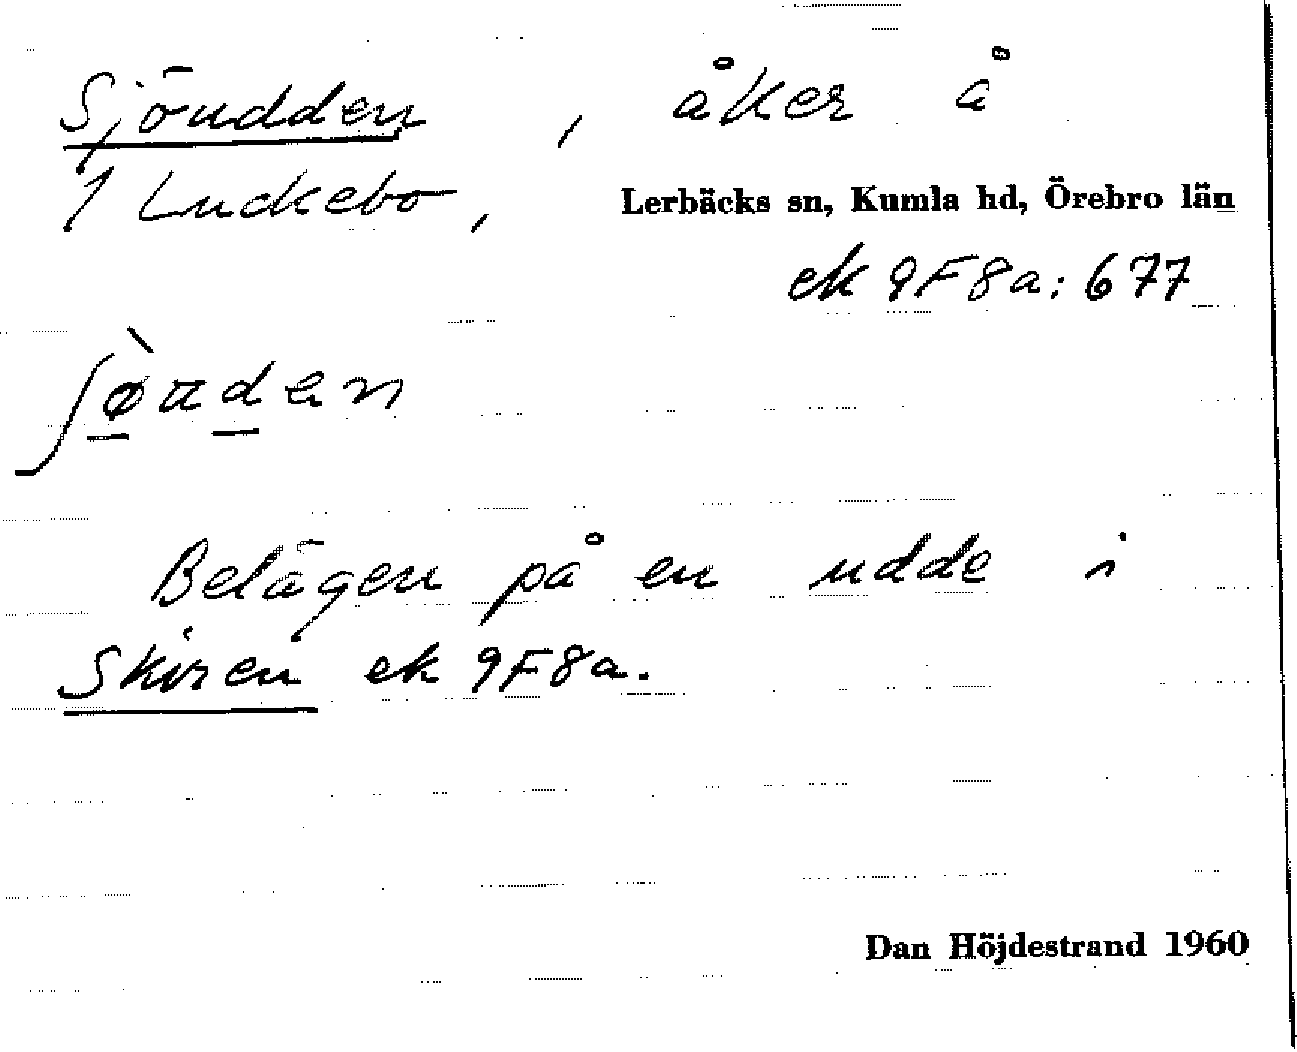 Sjöudden, åker å
1 Luckebo,
Lerbäcks sn, Kumla hd, Örebro län
ek 9F8a: 677
ʃø̀ɯdan
Belägen på en udde i
Skiren ek 9F8a.
Dan Höjdestrand 1960